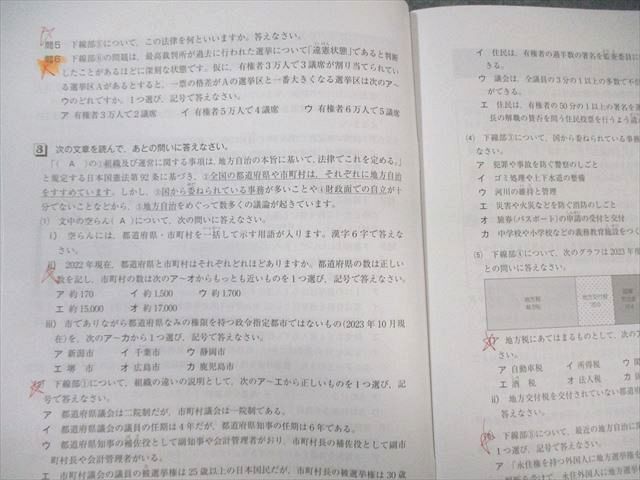 問5 下線部⑤について，この法律を何といいますか。答えなさい。
問6 下線部⑥の問題は，最高裁判所が過去に行われた選挙について「違憲状態」であると判断
したことがあるほどに深刻な状態です。仮に，有権者3万人で3議席が割り当てられてい
る選挙区Aがあるとすると，一票の格差がAの選挙区と一番大きくなる選挙区は次のア～
ウのどれですか。1つ選び，記号で答えなさい。
ア 有権者3万人で2議席 イ 有権者5万人で4議席 ウ 有権者6万人で5議席
3 次の文章を読んで，あとの問いに答えなさい。
「（ A ）の①組織及び運営に関する事項は，地方自治の本旨に基いて，法律でこれを定める。」
と規定する日本国憲法第92条に基づき，②全国の都道府県や市町村は，それぞれに地方自治
をすすめています。しかし，③国から委ねられている事務が多いことや④財政面での自立が十
分でないことなどから，⑤地方自治をめぐって数多くの議論が起きています。
(1) 文中の空らん（ A ）について，次の問いに答えなさい。
i) 空らんには，都道府県・市町村を一括して示す用語が入ります。漢字6字で答えな
さい。
ii) 2022年現在，都道府県と市町村はそれぞれどれほどありますか。都道府県の数は正しい
数を記し，市町村の数は次のア～オからもっとも近いものを1つ選び，記号で答えなさい。
ア 約170 イ 約1,500 ウ 約1,700
エ 約15,000 オ 約17,000
iii) 市でありながら都道府県なみの権限を持つ政令指定都市ではないもの(2023年10月現
在)を，次のア～カから1つ選び，記号で答えなさい。
ア 新潟市 イ 千葉市 ウ 静岡市
エ 堺 市 オ 広島市 カ 鹿児島市
下線部①について，組織の違いの説明として，次のア～エから正しいものを1つ選び，記
号で答えなさい。
ア 都道府県議会は二院制だが，市町村議会は一院制である。
イ 都道府県議会の議員の任期は4年だが，都道府県知事の任期は6年である。
ウ 都道府県知事の補佐役として副知事や会計管理者がおり，市町村長の補佐役として副市
町村長や会計管理者がいる。
エ 市町村議会の議員の被選挙権は25歳以上の日本国民だが，市町村長の被選挙権は30歳
イ 住民は，有権者の過半数の署名を
きる。
ウ 議会は，全議員の3分の1以上の多数で不信
ができる。
エ 住民は，有権者の50分の1以上の署名を
長の解職の賛否を問う住民投票を行うよう請
(4) 下線部③について，国から委ねられている事務
えなさい。
ア 犯罪や事故を防ぐ警察のしごと
イ ゴミ処理や上下水道の整備
ウ 河川の維持と管理
エ 災害や火災などを防ぐ消防のしごと
オ 旅券（パスポート）の申請の受付と交付
カ 中学校や小学校などの義務教育施設をつく
(5) 下線部④について，次のグラフは2023年度
との問いに答えなさい。
地方税
地方交付税
i) 地方税にあてはまるものとして，次の
ア 自動車税 イ 所得税 ウ
エ 酒 税 オ 法人税 カ
ii) 地方交付税を交付されていない都道府
下線部⑤について，最近の地方自治に関
1つ選び，記号で答えなさい。
ア 「永住権を持つ外国人に地方選挙権を